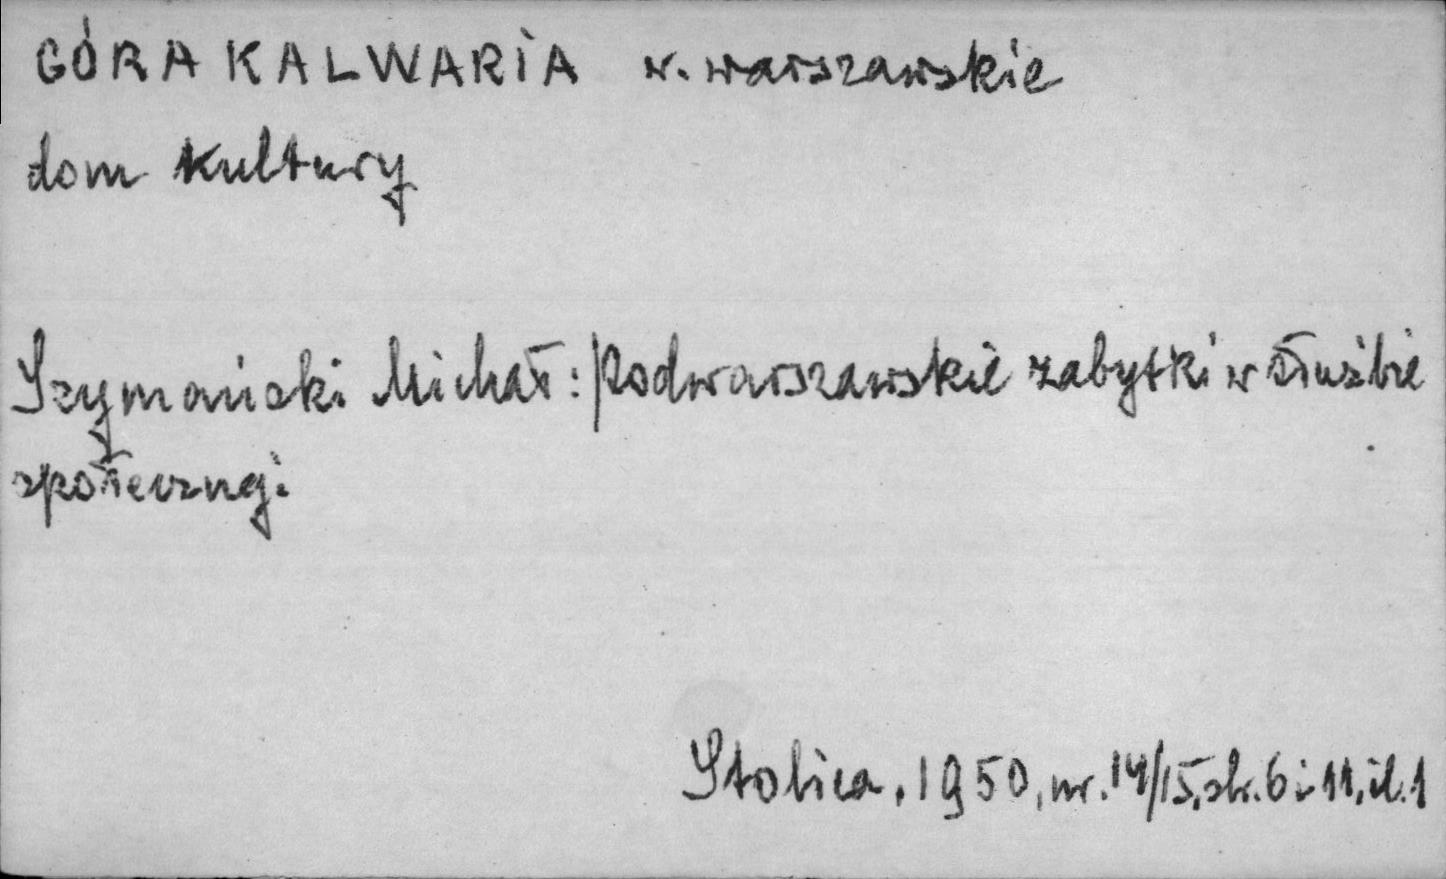 GÓRA KALWARIA w. warszawskie
dom kultury
Szymański Michał: Podwarszawskie zabytki w służbie
społecznej.
Stolica, 1950, nr. 14/15, str. 6 i 11, il. 1